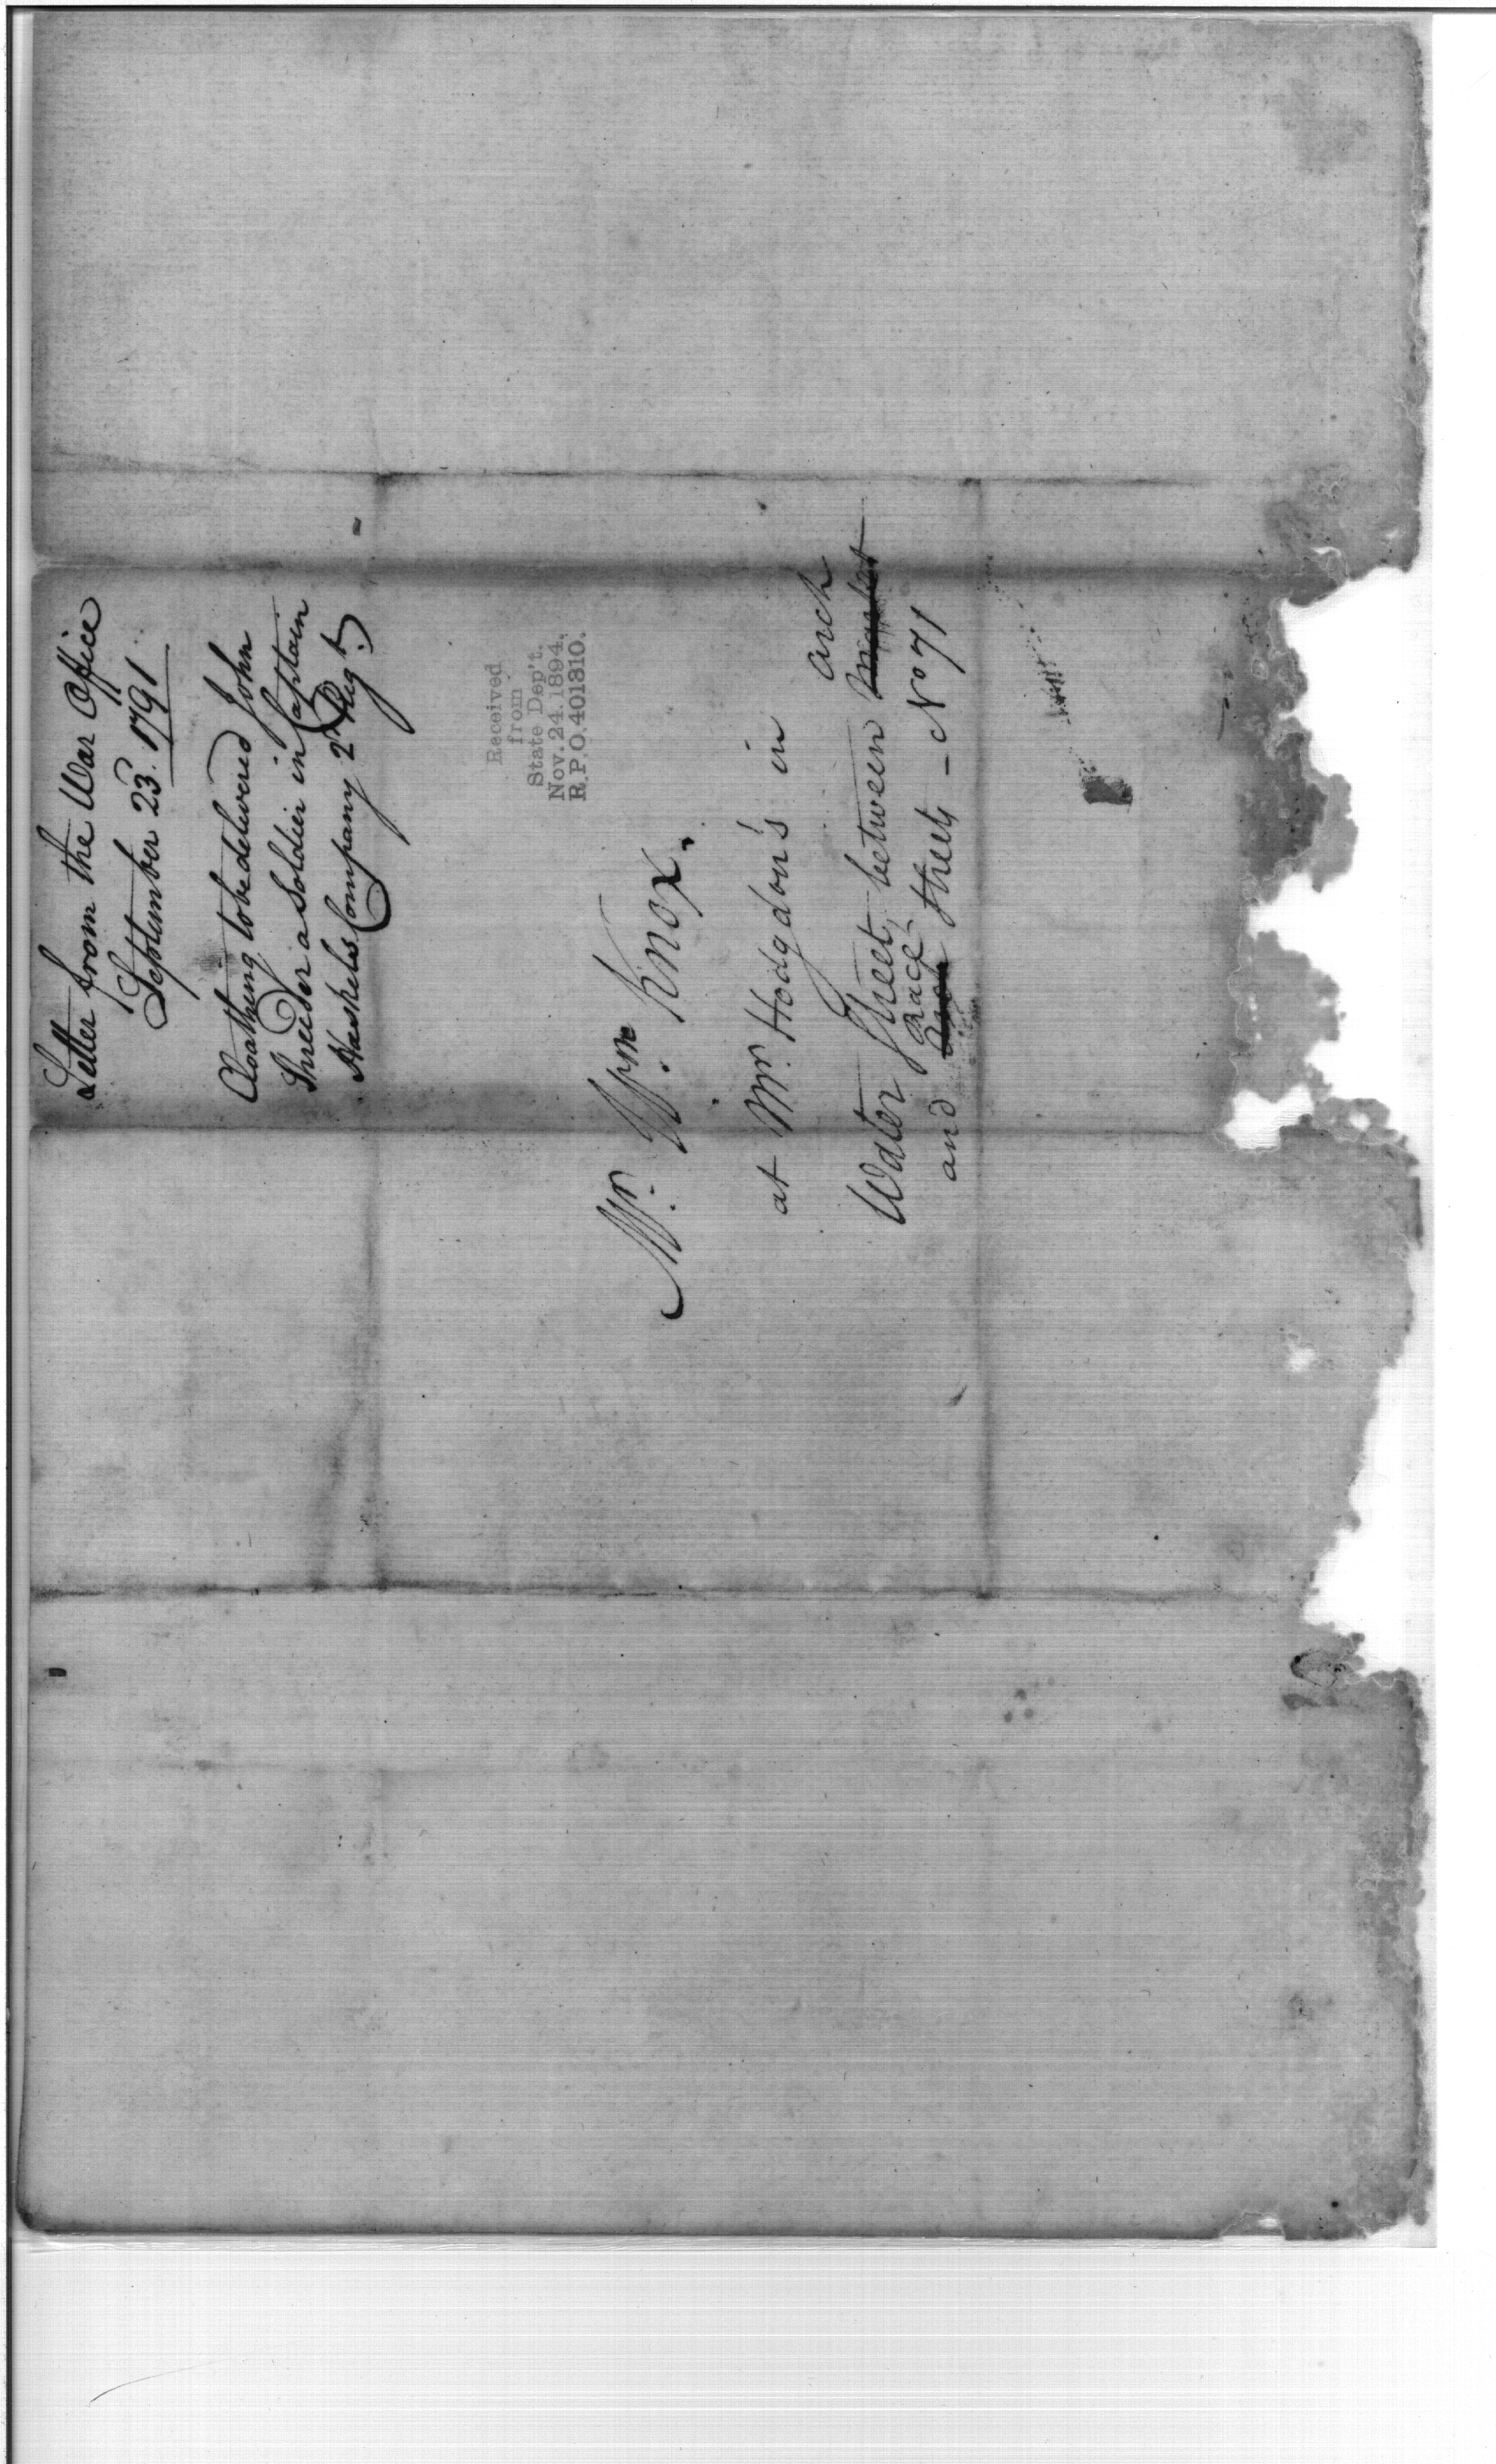 Letter from the War Office
September 23d. 1791
Cloathing to be delivered John
Shreeder a Soldier in Captain
Haskels Company 2d Regt.
Received
from
State Dep't.
Nov. 24. 1894.
R.P.O. 401310.
Mr. Wm. Knox.
at Mr. Hodgdon's in
arch
Water Street, between Market
Race
and Arch Streets - No 71